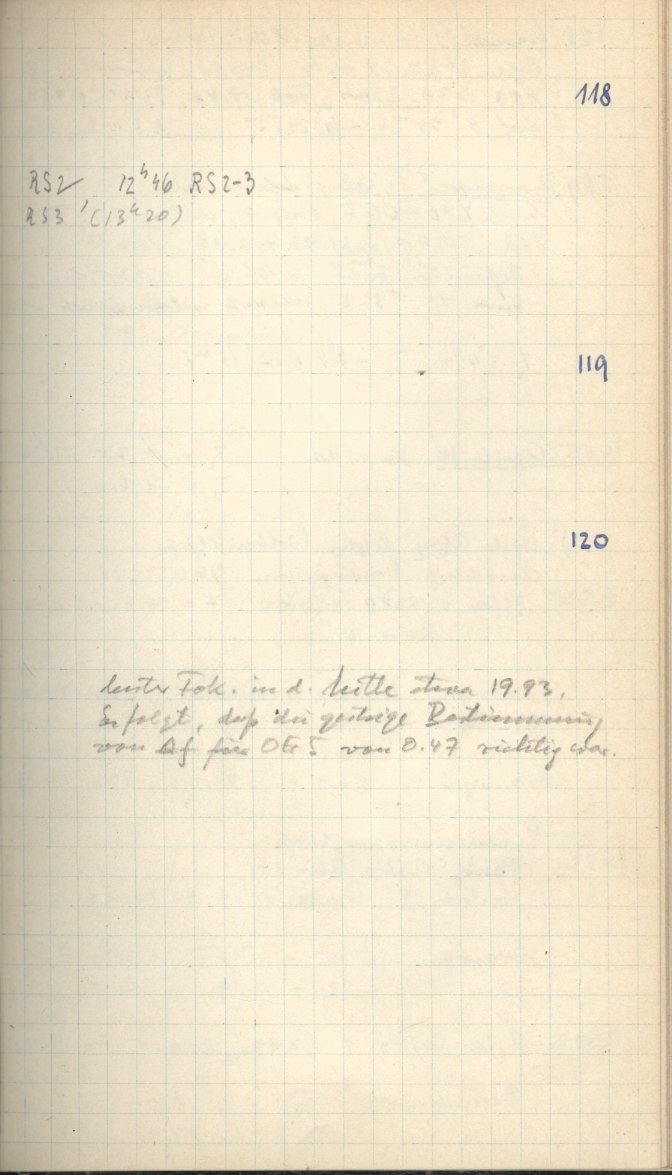 118
RS2 12ʰ46 RS2-3
RS3 (13ʰ20)
119
120
bester Fok. in d. Mitte etwa 19.93.
Es folgt, daß die gestrige Bestimmung
von Δf für von 0.47 richtig war.